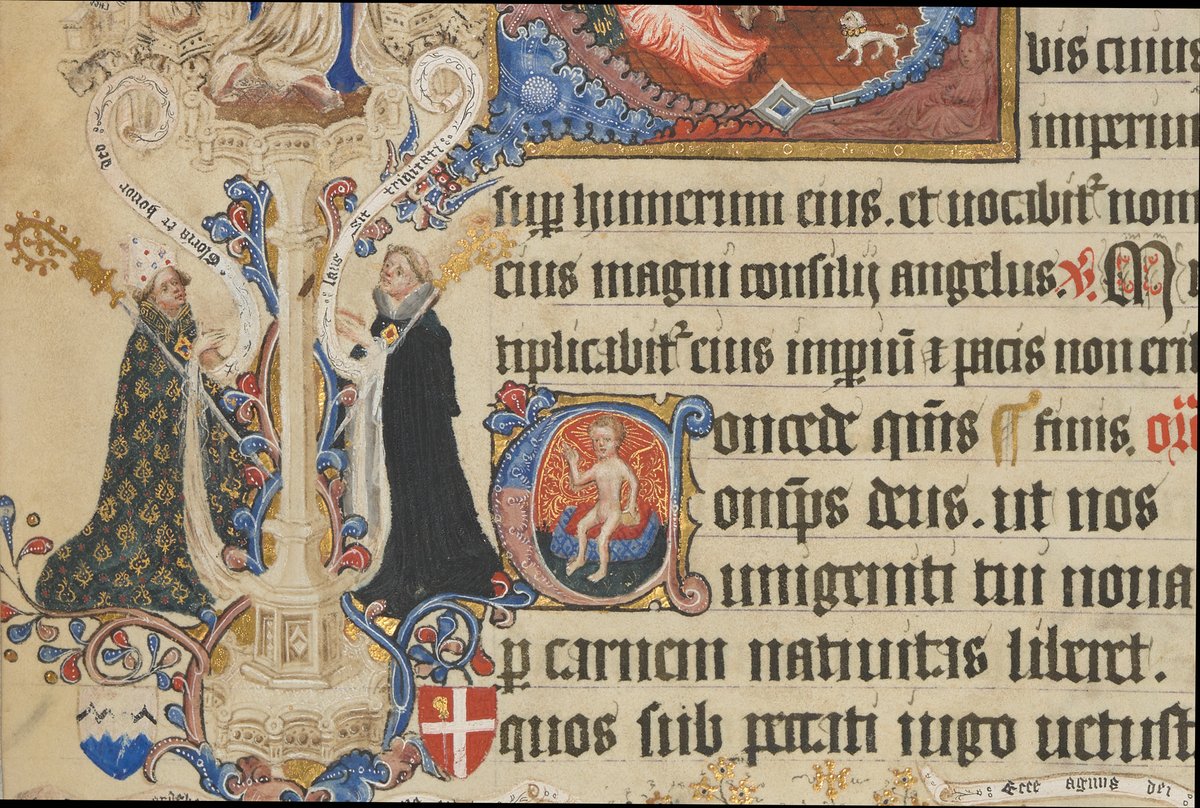 Gloria et honor deo
laus sit trinitati
vis cuius
imperium
sup humerum eius. et vocabit² nom
eius magni consilij angelus. V. M
tiplicabit² eius impiū & pacis non eri
Concede qm̄s ¶ finis.
omp̄s deus. ut nos
unigeniti tui nova
p carnem nativitas liberet.
quos sub peccati iugo vetust
Ecce agnus dei